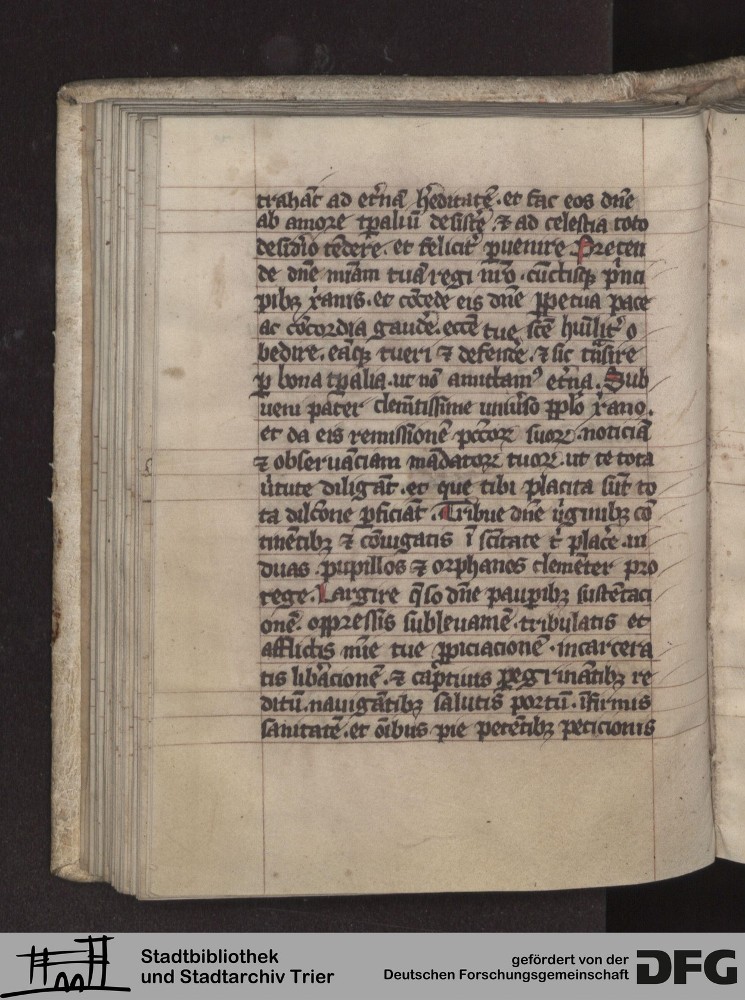 trahāt ad et̾nā h̾editatē. et fac eos dn̄e
ab amore tp̄aliū desist̾e. ⁊ ad celestia toto
desid̾io tēdere. et felicit̾ ꝑuenire Preten
de dn̄e mīam tuā regi nr̄o. cūctisqꝫ p̾nci
pibꝫ xp̄anis. et cōcede eis dn̄e ꝑpetua pace
ac cōcordia gaud̾e. eccē tue sc̄e hūilit̾ o
bedire. eāqꝫ tueri ⁊ defend̾e. ⁊ sic tn̄sire
ꝑ bona tp̄alia. ut nō amittamꝰ et̾na. Sub
ueni pater clemētissime uniu̾so pplo xp̄ano.
et da eis remissionē pccōꝝ suoꝝ. noticiā
⁊ obseruāciam mādatoꝝ tuoꝝ. ut te tota
u̾tute diligāt. et que tibi placita sūt to
ta dilcōne ꝑficiāt. Tribue dn̄e u̾ginibꝫ cō
tinētibꝫ ⁊ cōiugatis ī scītate t̾ plac̾e. ui
duas. pupillos ⁊ orphanos clemēter pro
rege. Largire q̄so dn̄e pauꝑibꝫ sustētaci
onē. oppressis subleuamē. tribulatis et
afflictis mīe tue ꝓpiciacionē. incarcera
tis lib̾acionē. ⁊ captiuis ꝑegrinātibꝫ re
ditū. nauigātibꝫ salutis portū. īfirmis
sanitatē. et oībus pie petētibꝫ peticionis
Stadtbibliothek
und Stadtarchiv Trier
gefördert von der
Deutschen Forschungsgemeinschaft
DFG